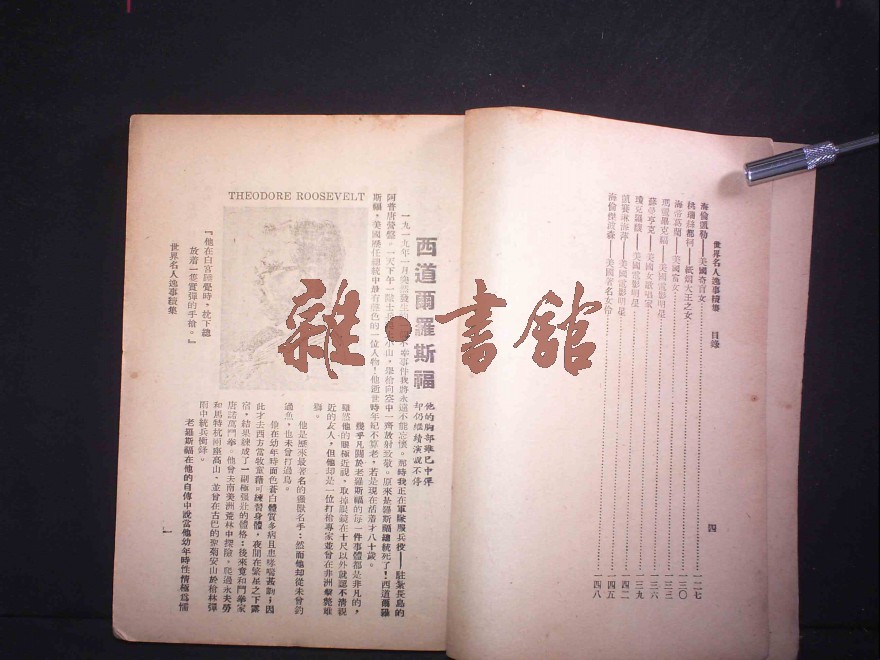 世界名人逸事續集 目錄
海倫凱勒——美國奇盲女……一二七
桃瑞絲都何——紙烟大王之女……一三〇
海蒂葛蘭——美國富女……一三三
瑪麗畢克福——美國電影明星……一三六
美國女歌唱家……一三九
美國電影明星……一四二
凱賽琳海萍——美國電影明星……一四五
海倫傑波森——美國著名女伶……一四八
四
雜·書館
西道爾羅斯福
他的胸部雖已中彈
却仍繼續演說不停
一九一九年一月
不幸事件我將永遠不能忘懷。那時我正在軍隊服兵役——駐紮長島的
阿普唐營盤。一天下午一隊士兵
小山，舉槍向空中一齊放射致敬。原來是羅斯福總統死了！西道爾羅
斯福，美國歷任總統中最有聲色的一位人物！他逝世時年紀不算老，若是現在活着才八十歲。
幾乎凡關於老羅斯福的每一件事體都是非凡的，
雖然他的眼極近視，取掉眼鏡在十尺以外就認不清親
近的友人，但他却是一位打槍專家並曾在非洲擊斃雄
獅。
他是歷來最著名的獵獸名手；然而他却從未曾釣
過魚，也未曾打過鳥。
他在幼年時面色蒼白體質多病且患哮喘甚劇；因
此才去西方當牧童藉可練習身體，夜間在繁星之下露
宿，結果練成了一副極強壯的體格；後來竟和鬥拳家
唐諾萬鬥拳。他曾去南美洲荒林中探險，爬過永夫勞
和馬特杭兩座高山，並曾在古巴的聖菊安山於槍林彈
雨中統兵衝鋒。
老羅斯福在他的自傳中說當他幼年時性情極爲懦
THEODORE ROOSEVELT
『他在白宮睡覺時，枕下總
放着一隻實彈的手槍。』
世界名人逸事續集
一